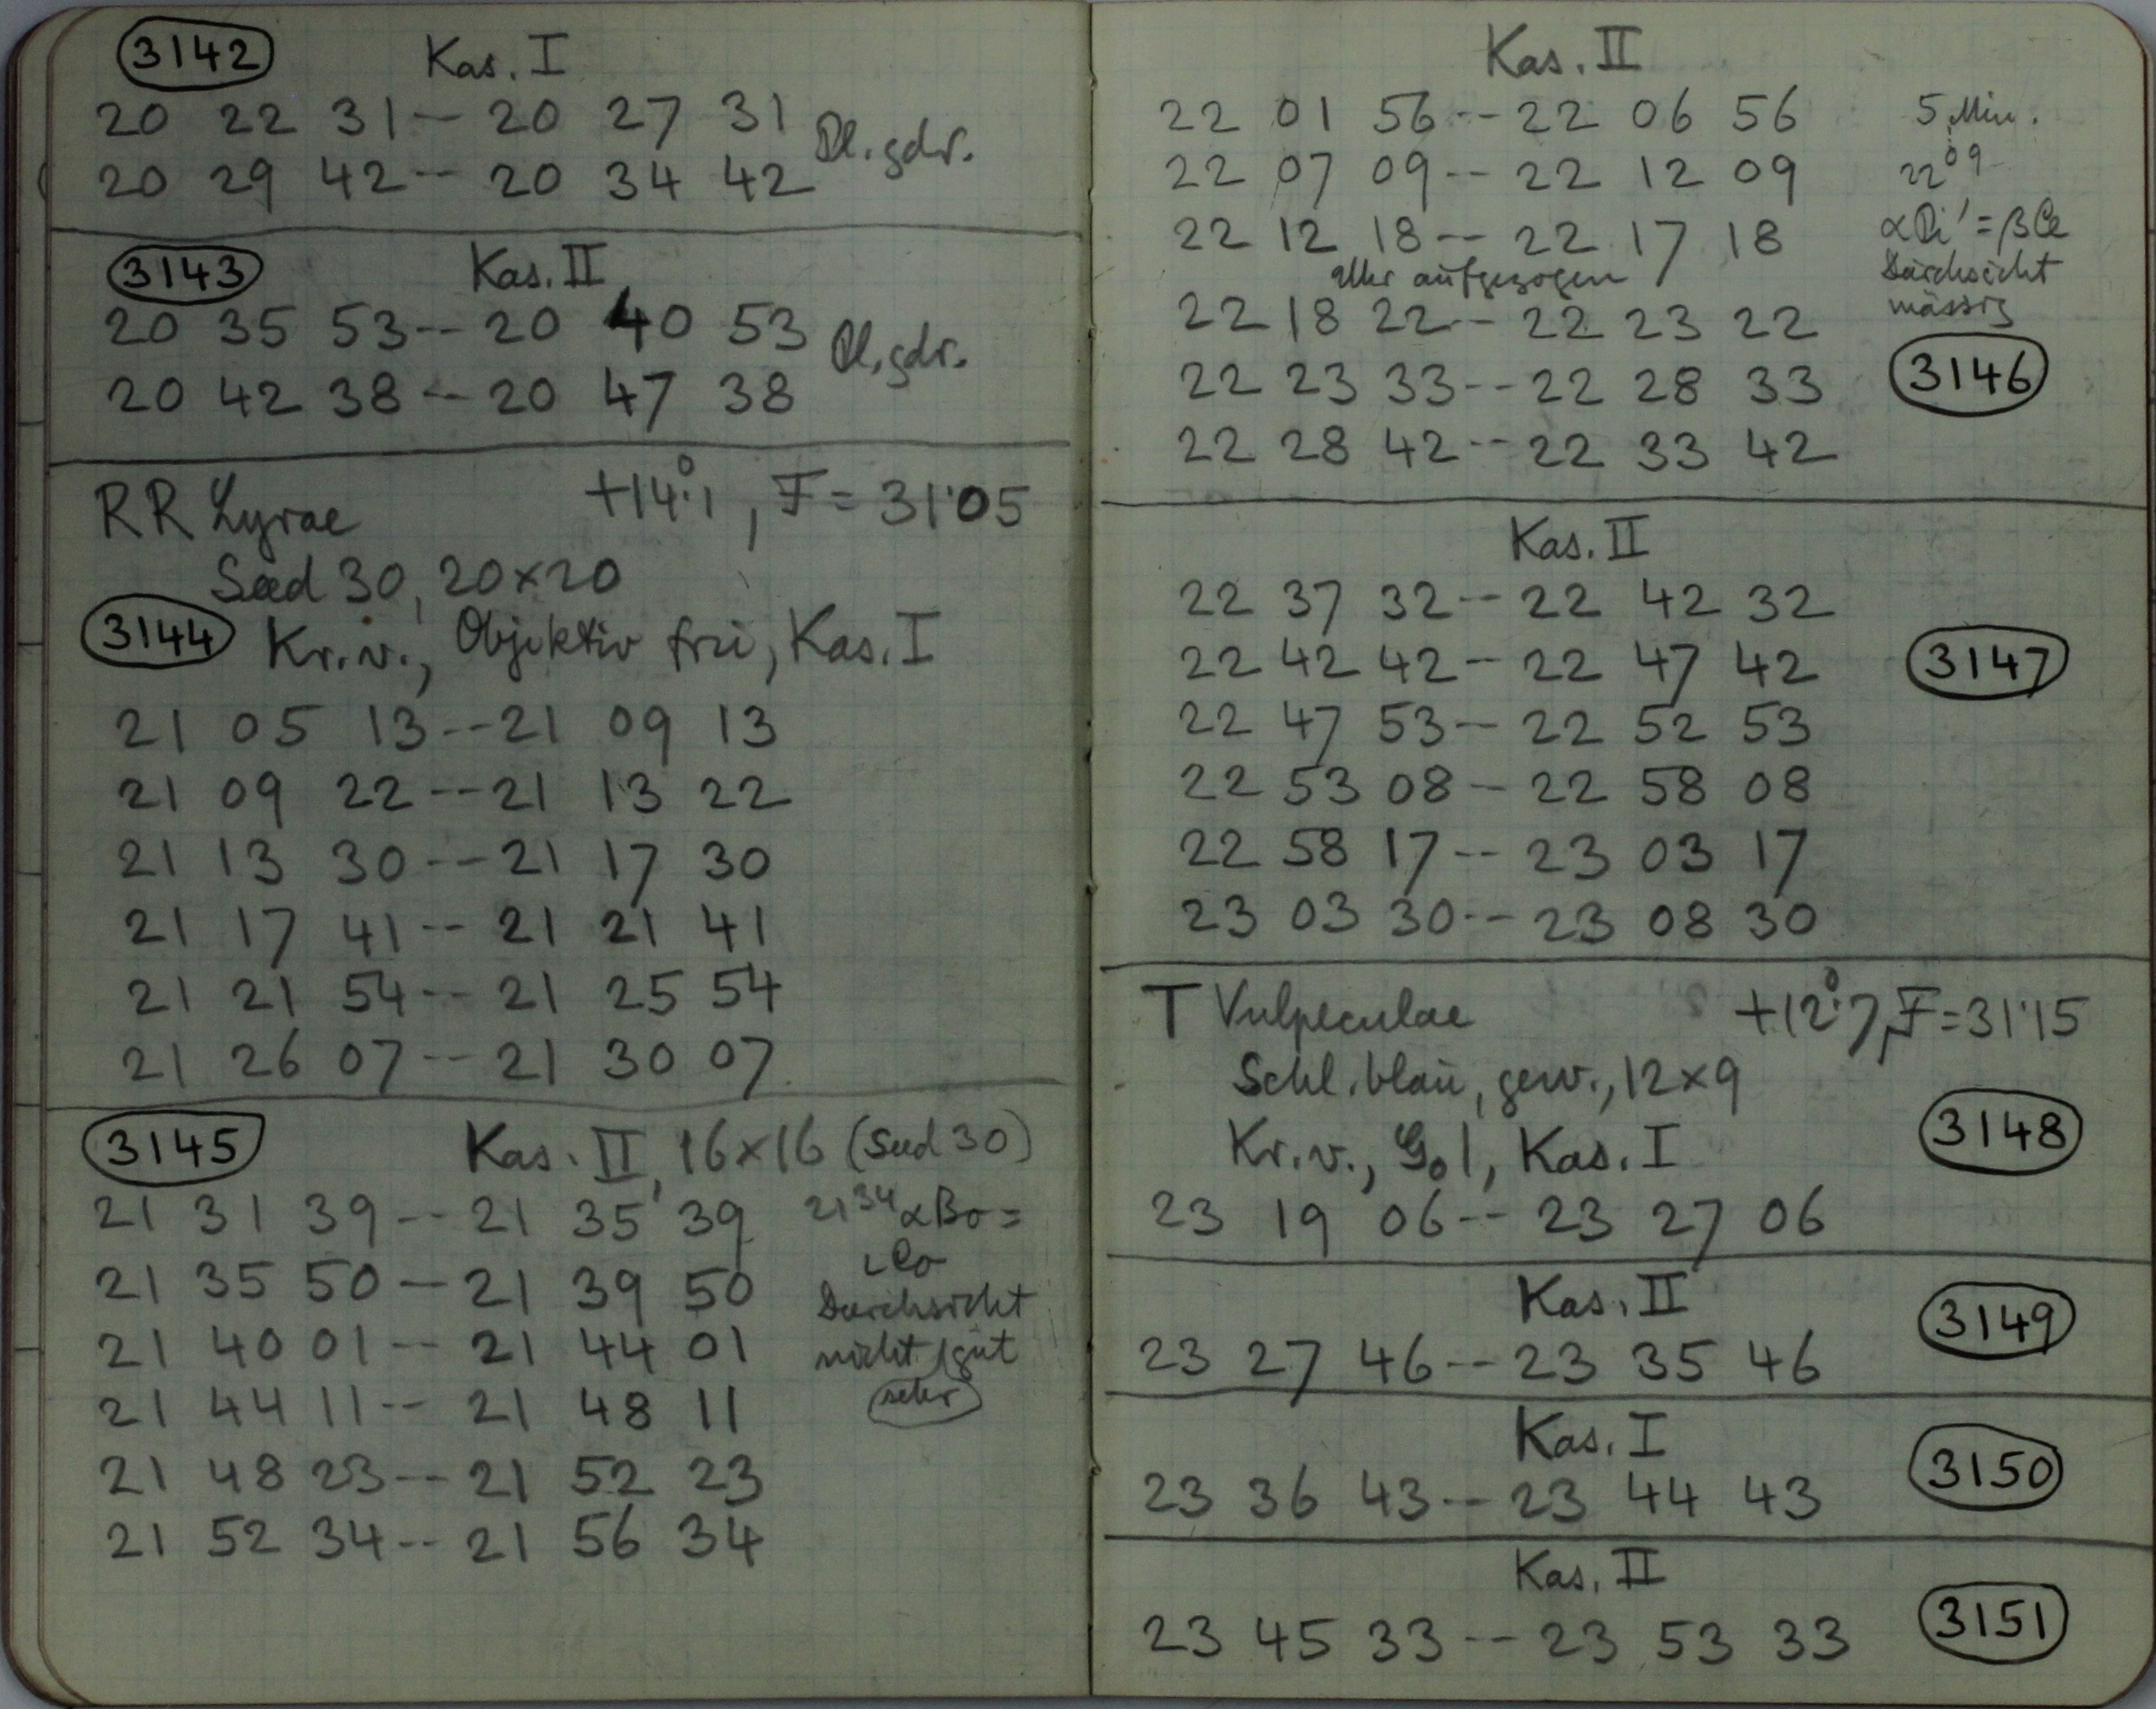 3142 Kas. I
20 22 31 -- 20 27 31 Pl. gdr.
20 29 42 -- 20 34 42
3143 Kas. II
20 35 53 -- 20 40 53 Pl. gdr.
20 42 38 -- 20 47 38
RR Lyrae +14°.1, F = 31'05
Sud 30, 20×20
3144 Kr. v., Objektiv frei, Kas. I
21 05 13 -- 21 09 13
21 09 22 -- 21 13 22
21 13 30 -- 21 17 30
21 17 41 -- 21 21 41
21 21 54 -- 21 25 54
21 26 07 -- 21 30 07
3145 Kas. II, 16×16 (Sud 30)
21 31 39 -- 21 35 39
21 35 50 -- 21 39 50
21 40 01 -- 21 44 01
21 44 11 -- 21 48 11
21 48 23 -- 21 52 23
21 52 34 -- 21 56 34
21 34 α Bo =
Durchsicht
nicht gut
sehr
Kas. II
22 01 56 -- 22 06 56
22 07 09 -- 22 12 09
22 12 18 -- 22 17 18
aufgezogen
22 18 22 -- 22 23 22
22 23 33 -- 22 28 33
22 28 42 -- 22 33 42
5 Min.
22 09
= β Ce
Durchsicht
mässig
3146
Kas. II
22 37 32 -- 22 42 32
22 42 42 -- 22 47 42 3147
22 47 53 -- 22 52 53
22 53 08 -- 22 58 08
22 58 17 -- 23 03 17
23 03 30 -- 23 08 30
T Vulpeculae +12°.7, F = 31'15
Schl. blau, gew., 12×9
Kr. v., G01, Kas. I 3148
23 19 06 -- 23 27 06
Kas. II 3149
23 27 46 -- 23 35 46
Kas. I 3150
23 36 43 -- 23 44 43
Kas. II 3151
23 45 33 -- 23 53 33